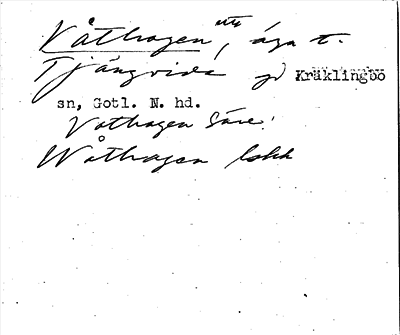 Våthagen, äga t.
Tjängvide gd Kräklingbo
sn, Gotl. N. hd.
Vathagen Säve!
Wåthagen lskk